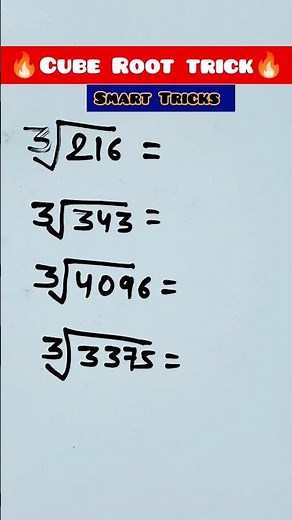 🔥CUBE ROOT TRICK🔥
SMART TRICKS
∛216 =
∛343 =
∛4096 =
∛3375 =